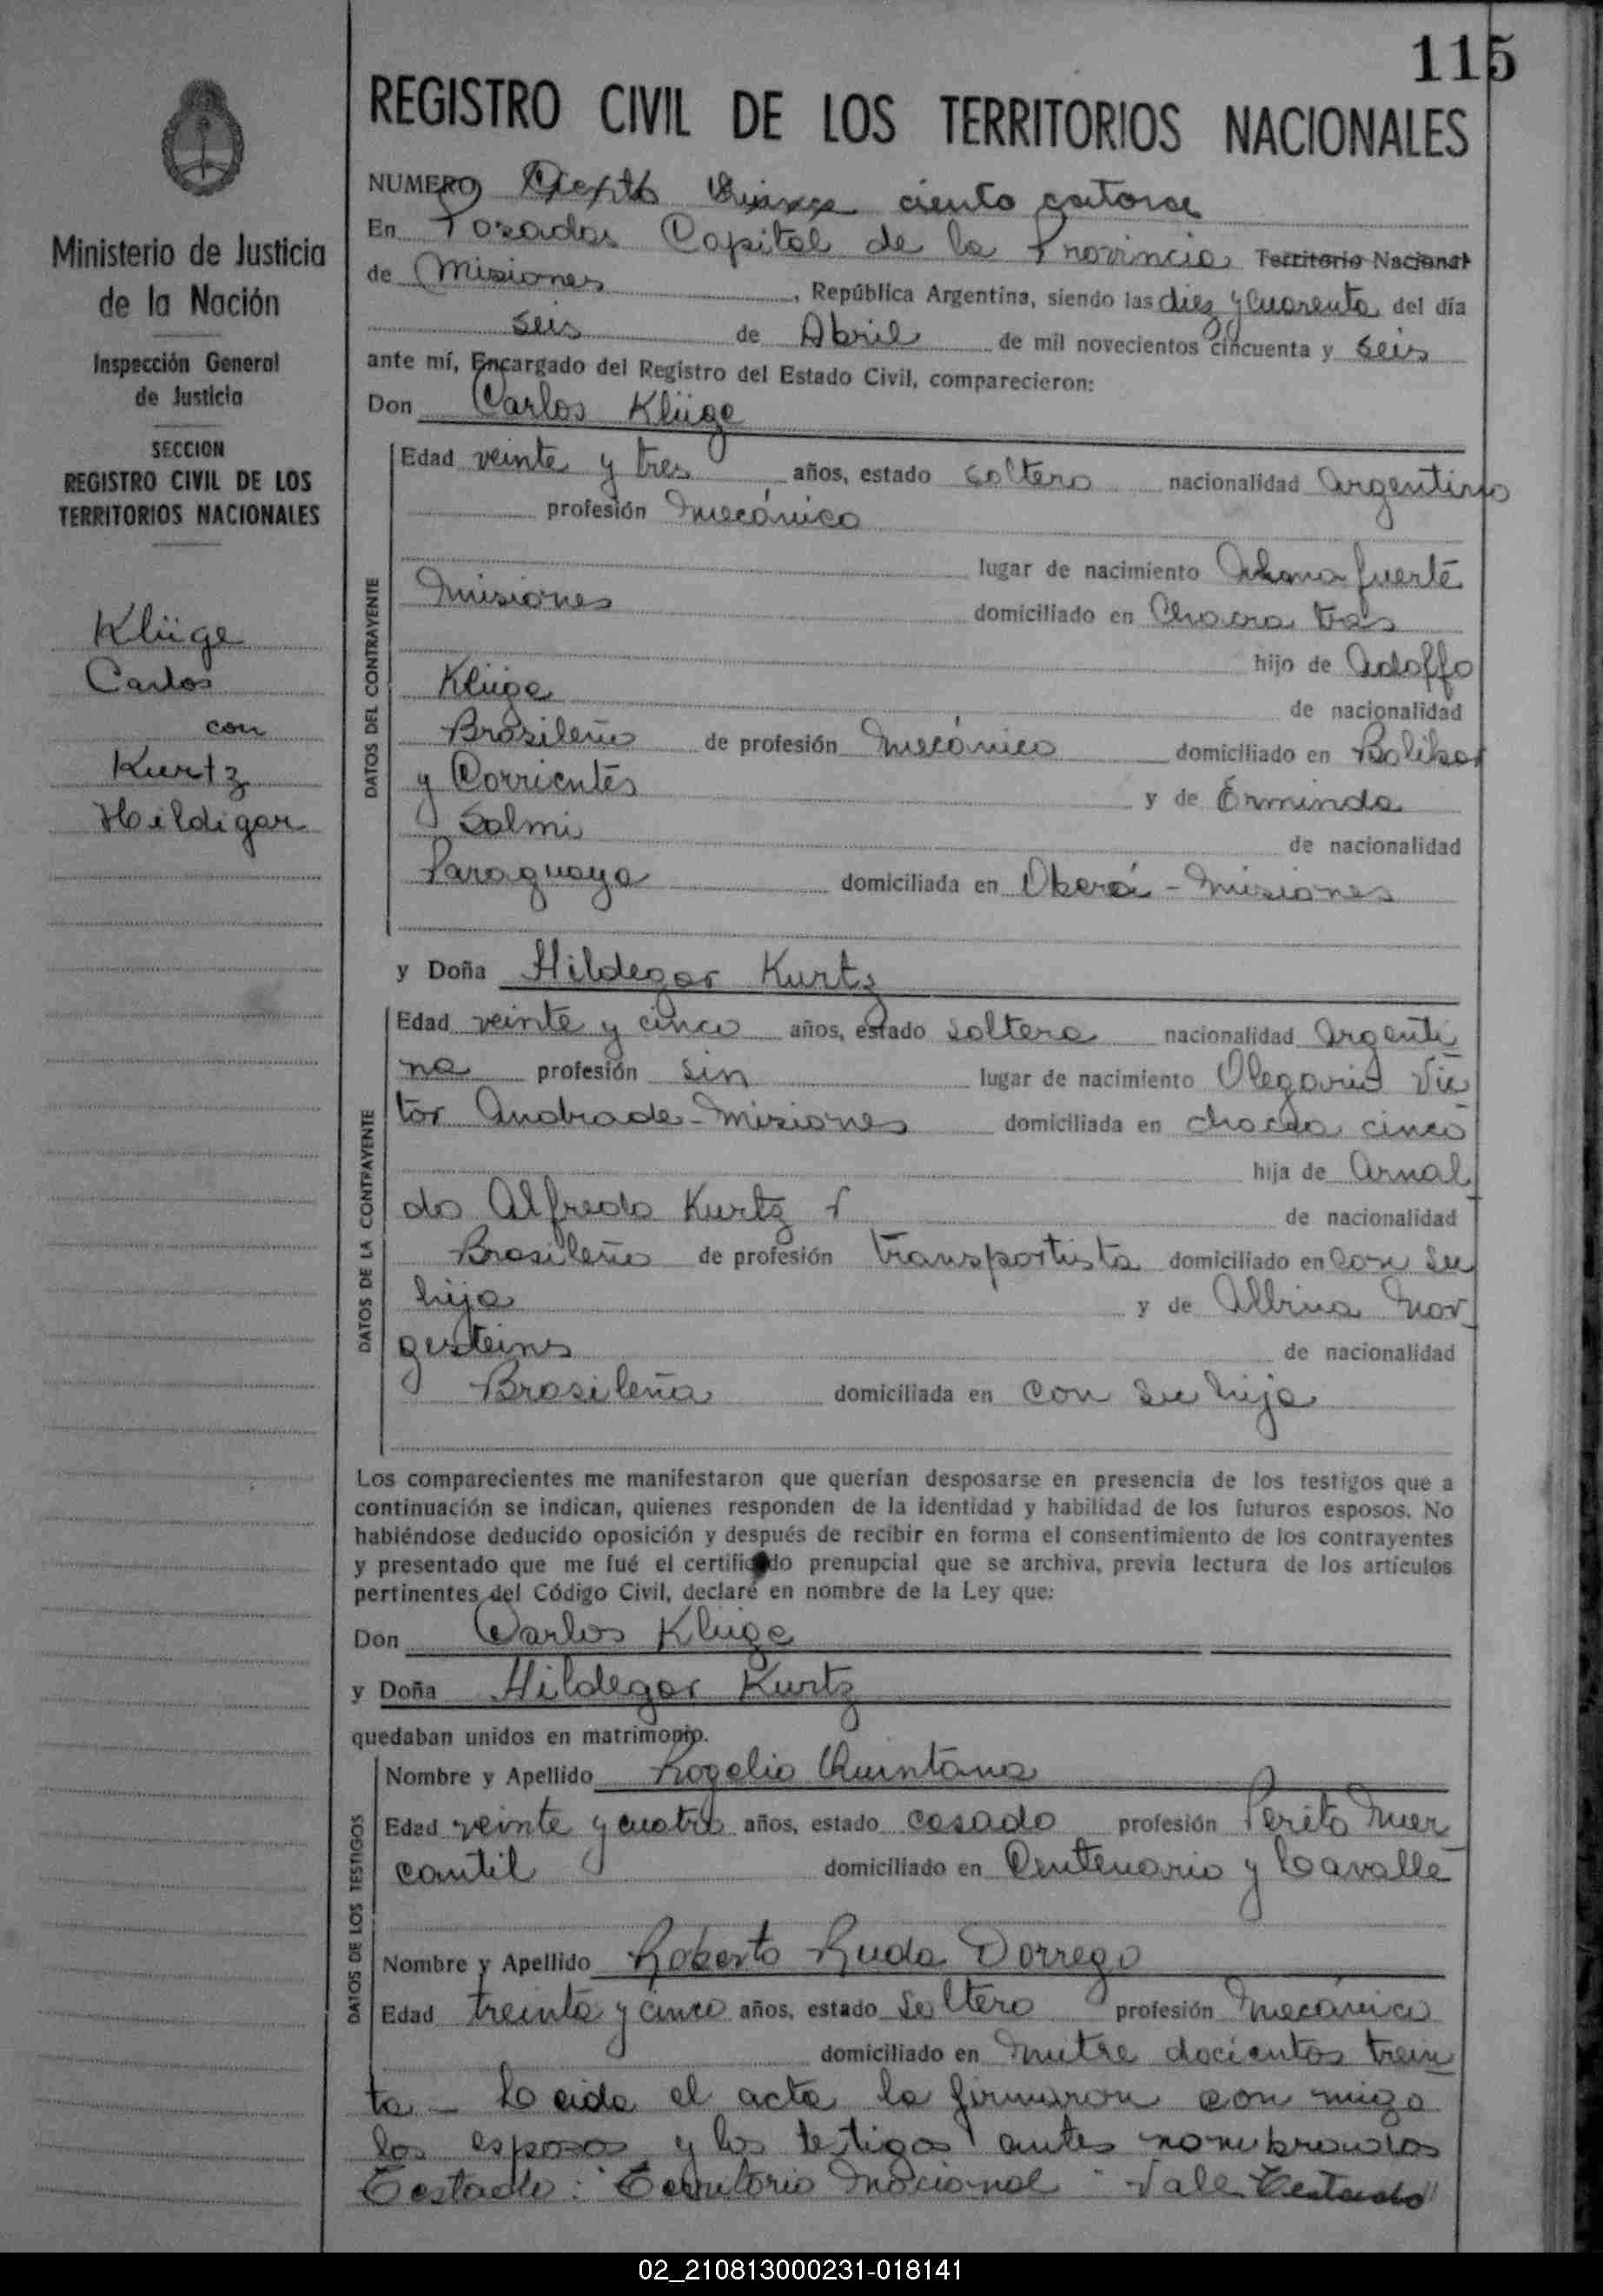 115
REGISTRO CIVIL DE LOS TERRITORIOS NACIONALES
Ministerio de Justicia
de la Nación
Inspección General
de Justicia
SECCION
REGISTRO CIVIL DE LOS
TERRITORIOS NACIONALES
Klüge
Carlos
con
Kurtz
Hildigar
NUMERO ciento catorce
En Posadas Capital de la Provincia Territorio Nacional
de Misiones, República Argentina, siendo las diez y cuarenta del día
seis de Abril de mil novecientos cincuenta y seis
ante mí, Encargado del Registro del Estado Civil, comparecieron:
Don Carlos Klüge
DATOS DEL CONTRAYENTE
Edad veinte y tres años, estado soltero nacionalidad argentino
profesión mecánico
lugar de nacimiento fuerte
Misiones domiciliado en Chacra tres
hijo de Adolfo
Klüge de nacionalidad
Brasileño de profesión mecánico domiciliado en Bolibar
y Corrientes y de Erminda
Salmi de nacionalidad
Paraguaya domiciliada en Oberá - Misiones
y Doña Hildegar Kurtz
DATOS DE LA CONTRAYENTE
Edad veinte y cinco años, estado soltera nacionalidad argenti
na profesión sin lugar de nacimiento Olegario Vic
tor Andrade - Misiones domiciliada en chacra cinco
hija de Arnal
do Alfredo Kurtz de nacionalidad
Brasileño de profesión transportista domiciliado en con su
hija y de Albina Mor
gesteins de nacionalidad
Brasileña domiciliada en con su hija
Los comparecientes me manifestaron que querían desposarse en presencia de los testigos que a
continuación se indican, quienes responden de la identidad y habilidad de los futuros esposos. No
habiéndose deducido oposición y después de recibir en forma el consentimiento de los contrayentes
y presentado que me fué el certificado prenupcial que se archiva, previa lectura de los artículos
pertinentes del Código Civil, declaré en nombre de la Ley que:
Don Carlos Klüge
y Doña Hildegar Kurtz
quedaban unidos en matrimonio.
DATOS DE LOS TESTIGOS
Nombre y Apellido Rogelio Quintana
Edad veinte y cuatro años, estado casado profesión Perito Mer
cantil domiciliado en Centenario y Lavalle
Nombre y Apellido Roberto Ruda Dorrego
Edad treinta y cinco años, estado soltero profesión mecánico
domiciliado en Mitre docientos trein
ta - Leida el acta la firmaron con migo
los esposos y los testigos antes nombrados
Testado: "Territorio Nacional" Vale Testado
02_210813000231-018141